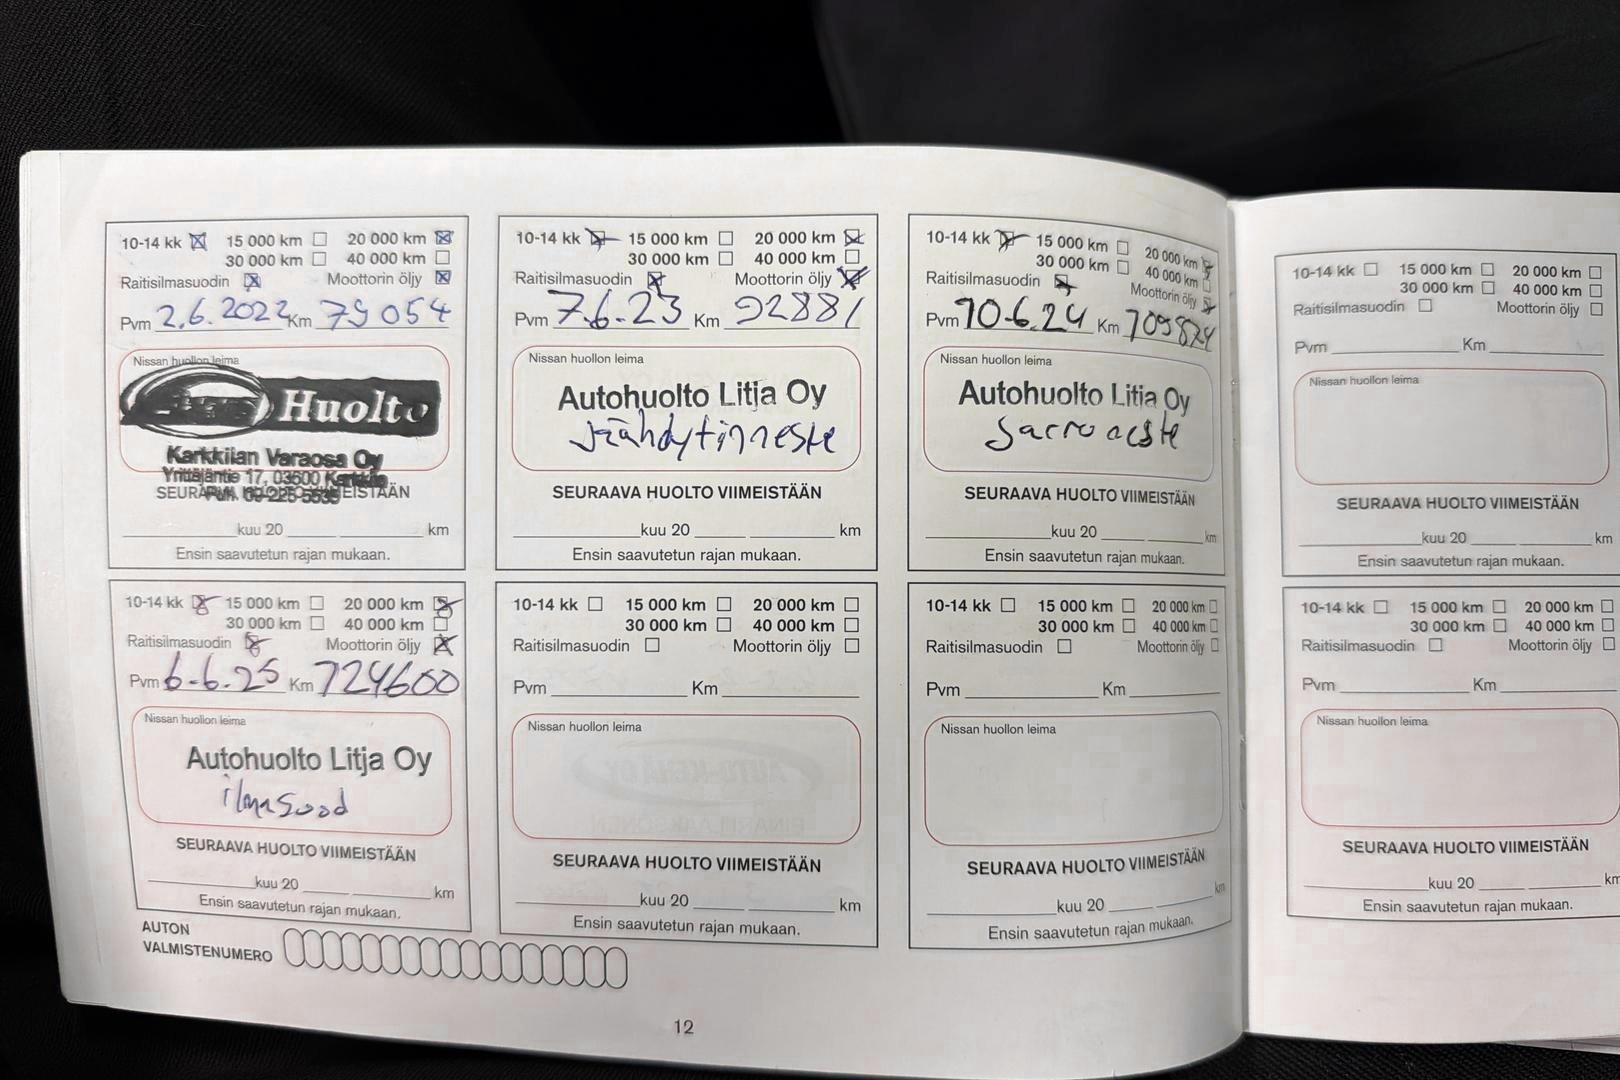 10-14 kk 15 000 km 20 000 km
30 000 km 40 000 km
Raitisilmasuodin Moottorin öljy
Pvm 2.6.2022 Km 79 054
Nissan huollon leima
Huolto
Karkkilan Varaosa Oy
Yrittäjäntie 17, 03600 Karkkila
Puh. 09-225 5535
SEURAAVA HUOLTO VIIMEISTÄÄN
kuu 20 km
Ensin saavutetun rajan mukaan.
10-14 kk 15 000 km 20 000 km
30 000 km 40 000 km
Raitisilmasuodin Moottorin öljy
Pvm 7.6.23 Km 92881
Nissan huollon leima
Autohuolto Litja Oy
Jäähdytinneste
SEURAAVA HUOLTO VIIMEISTÄÄN
kuu 20 km
Ensin saavutetun rajan mukaan.
10-14 kk 15 000 km 20 000 km
30 000 km 40 000 km
Raitisilmasuodin Moottorin öljy
Pvm 10.6.24 Km 109824
Nissan huollon leima
Autohuolto Litja Oy
Jarruneste
SEURAAVA HUOLTO VIIMEISTÄÄN
kuu 20 km
Ensin saavutetun rajan mukaan.
10-14 kk 15 000 km 20 000 km
30 000 km 40 000 km
Raitisilmasuodin Moottorin öljy
Pvm 6.6.25 Km 124600
Nissan huollon leima
Autohuolto Litja Oy
ilmasuod
SEURAAVA HUOLTO VIIMEISTÄÄN
kuu 20 km
Ensin saavutetun rajan mukaan.
10-14 kk 15 000 km 20 000 km
30 000 km 40 000 km
Raitisilmasuodin Moottorin öljy
Pvm Km
Nissan huollon leima
SEURAAVA HUOLTO VIIMEISTÄÄN
kuu 20 km
Ensin saavutetun rajan mukaan.
10-14 kk 15 000 km 20 000 km
30 000 km 40 000 km
Raitisilmasuodin Moottorin öljy
Pvm Km
Nissan huollon leima
SEURAAVA HUOLTO VIIMEISTÄÄN
kuu 20 km
Ensin saavutetun rajan mukaan.
AUTON
VALMISTENUMERO
12
10-14 kk 15 000 km 20 000 km
30 000 km 40 000 km
Raitisilmasuodin Moottorin öljy
Pvm Km
Nissan huollon leima
SEURAAVA HUOLTO VIIMEISTÄÄN
kuu 20 km
Ensin saavutetun rajan mukaan.
10-14 kk 15 000 km 20 000 km
30 000 km 40 000 km
Raitisilmasuodin Moottorin öljy
Pvm Km
Nissan huollon leima
SEURAAVA HUOLTO VIIMEISTÄÄN
kuu 20 km
Ensin saavutetun rajan mukaan.